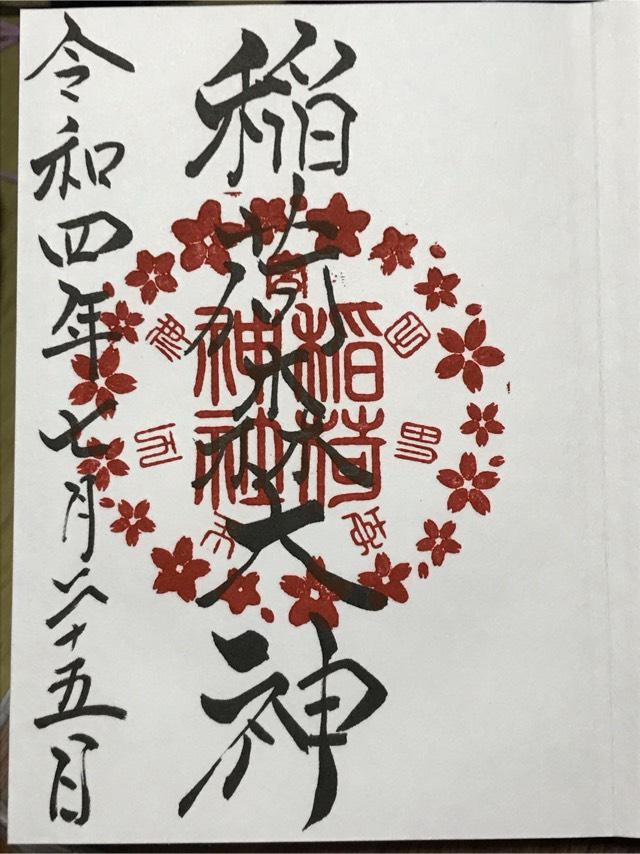 稲荷森大神
稲荷
神社
令和四年七月二十五日